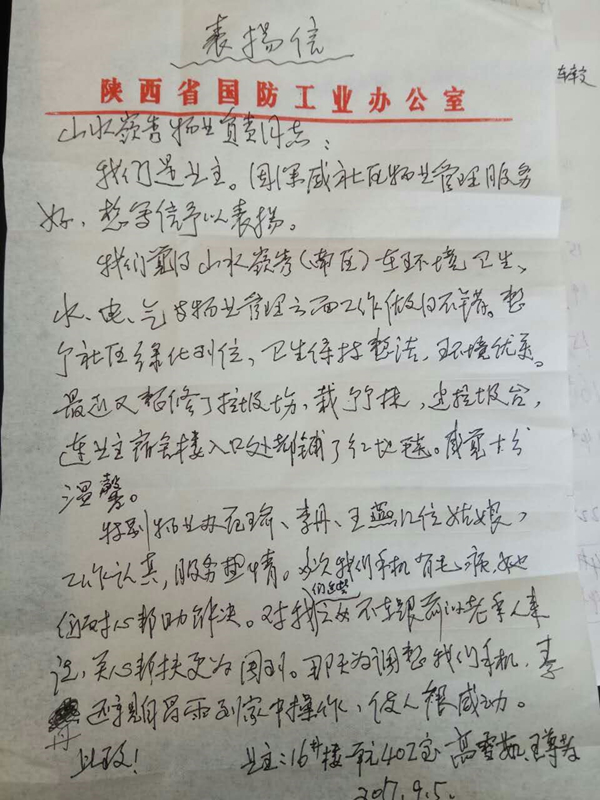 表扬信
陕西省国防工业办公室
车库交
山水嶺秀物业负责同志：
我们是业主。因深感社区物业管理服务
好，想写信予以表扬。
我们觉得山水嶺秀(南区)在环境卫生、
水、电、气等物业管理方面工作做得不错。整
个社区绿化到位，卫生保持整洁，环境优美。
最近又整修了垃圾场，栽了竹林，建垃圾台，
连业主宿舍楼入口处都铺了红地毯。感觉十分
温馨。
特别物业办石瑜、李丹、王燕几位姑娘，
工作认真，服务热情。多次我们手机有毛病，她
们耐心帮助解决。对我们这些
子女不在跟前的老年人来
说，关心帮扶更为周到。那天为调整我们手机，李
丹还亲自冒雨到家中操作，使人很感动。
此致！
业主：16#楼一单元402室
2017.9.5.